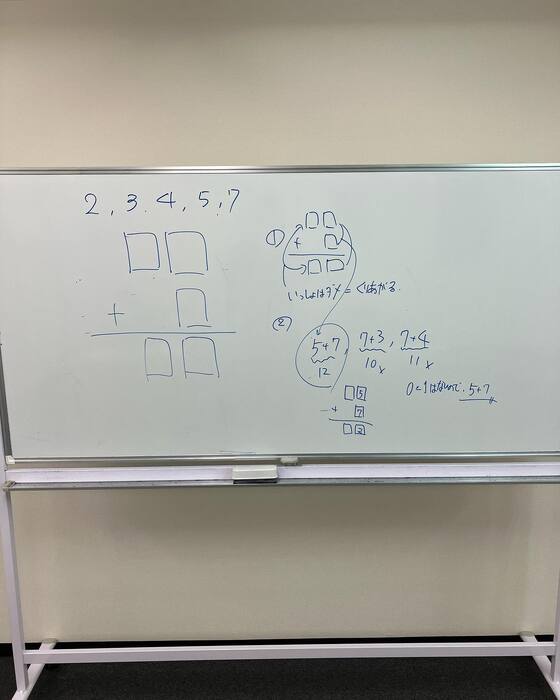 2, 3, 4, 5, 7
+
①
+
いっしょはダメ = くりあがる.
②
5+7, 7+3, 7+4
12 10 x 11 x
0と1はないので, 5+7
5
+ 7
2